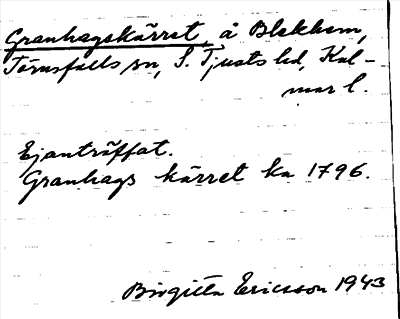 Granhagskärret, å Blekhem,
Törnsfalls sn, S. Tjusts hd, Kal-
mar l.
Ej anträffat.
Granhags kärret ka 1796.
Birgitta Ericsson 1943